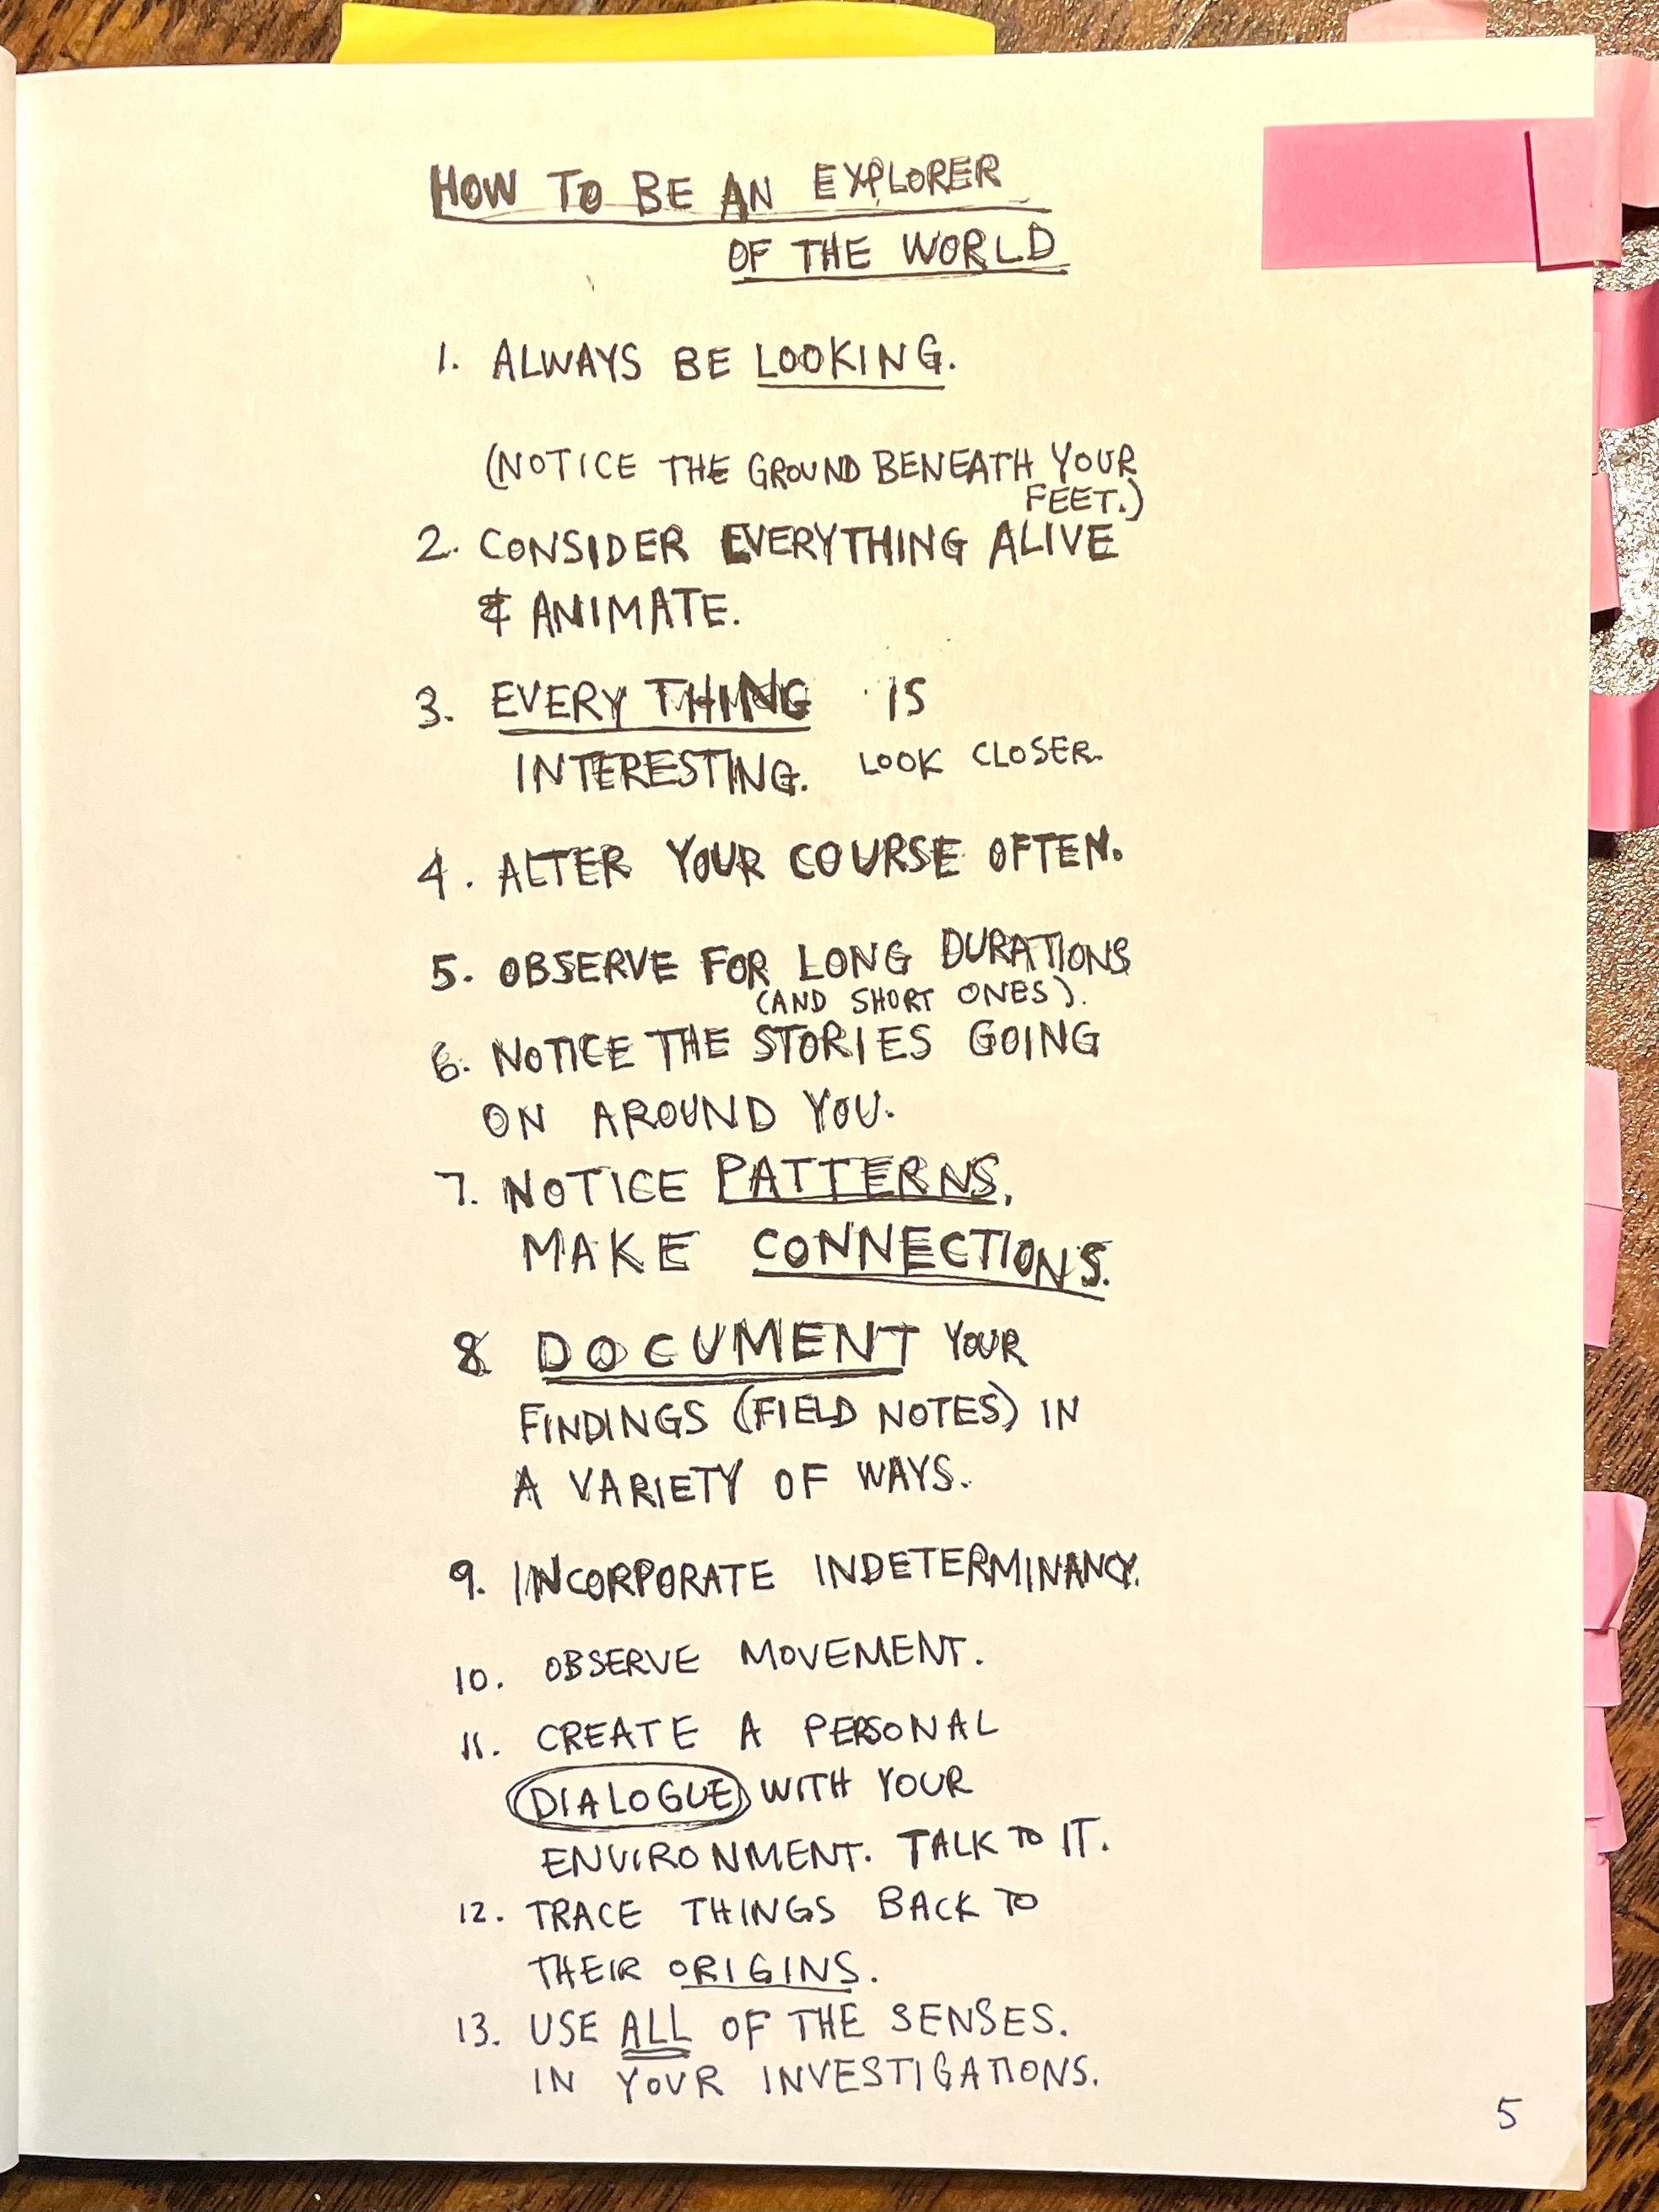 HOW TO BE AN EXPLORER
OF THE WORLD
1. ALWAYS BE LOOKING.
(NOTICE THE GROUND BENEATH YOUR
FEET.)
2. CONSIDER EVERYTHING ALIVE
& ANIMATE.
3. EVERY THING IS
INTERESTING. LOOK CLOSER.
4. ALTER YOUR COURSE OFTEN.
5. OBSERVE FOR LONG DURATIONS
(AND SHORT ONES).
6. NOTICE THE STORIES GOING
ON AROUND YOU.
7. NOTICE PATTERNS,
MAKE CONNECTIONS.
8 DOCUMENT YOUR
FINDINGS (FIELD NOTES) IN
A VARIETY OF WAYS.
9. INCORPORATE INDETERMINANCY.
10. OBSERVE MOVEMENT.
11. CREATE A PERSONAL
DIALOGUE WITH YOUR
ENVIRONMENT. TALK TO IT.
12. TRACE THINGS BACK TO
THEIR ORIGINS.
13. USE ALL OF THE SENSES.
IN YOUR INVESTIGATIONS.
5